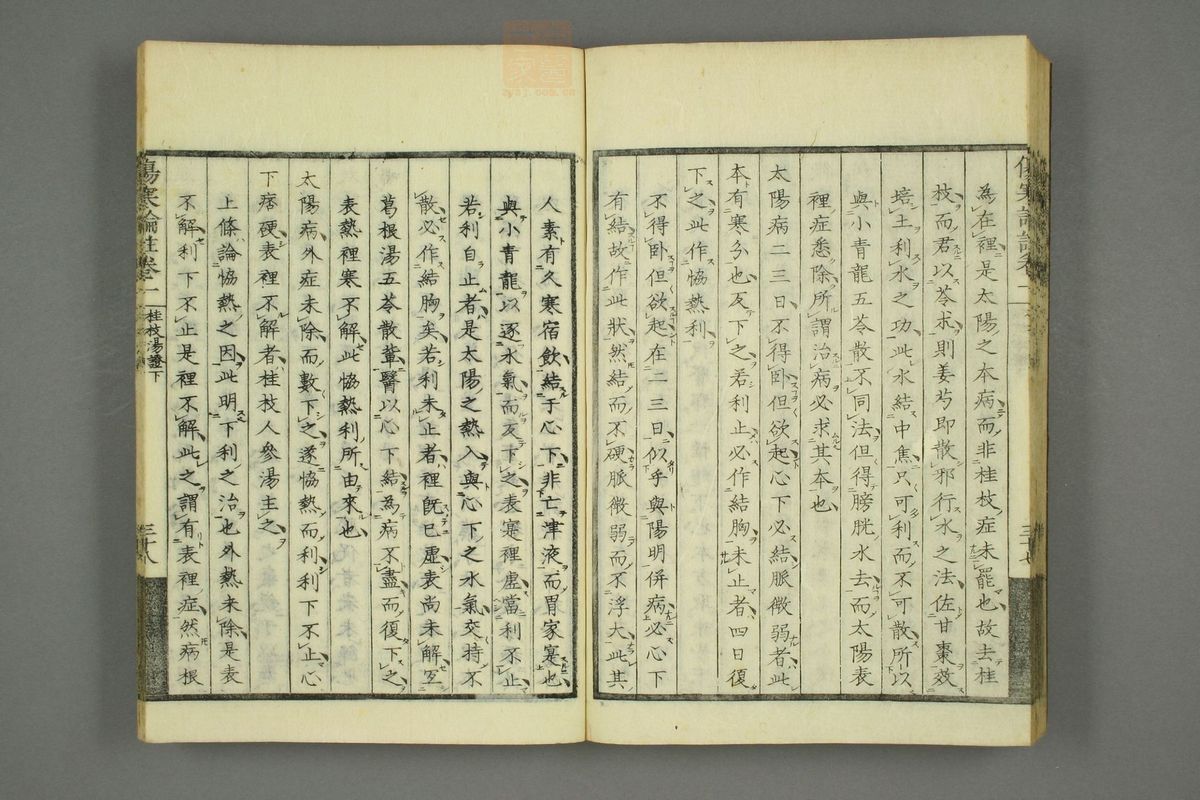 為在裡是太陽之本病而非桂枝症未罷也故去桂
枝而君以苓求則姜芍即散邪行水之法佐甘棗效
培土利水之功此水結中焦只可利而不可散所以
與小青龍五苓散不同法但得膀胱水去而太陽表
裡症悉除所謂治病必求其本也
太陽病二三日不得卧但欲起心下必結脈微弱者此
本有寒分也反下之若利止必作結胸未止者四日復
下之此作協熱利
不得卧但欲起在二三日似乎與陽明併病必心下
有結故作此狀然結而不硬脈微弱而不浮大此其
人素有久寒宿飲結于心下非亡津液而胃家寔也
與小青龍以逐水氣而反下之表寔裡虛當利不止
若利自止者是太陽之熱入與心下之水氣交持不
散必作結胸矣若利未止者裡既已虛表尚未解宜
葛根湯五苓散輩醫以心下結為病不盡而復下之
表熱裡寒不解此協熱利所由來也
太陽病外症未除而數下之遂協熱而利利下不止心
下痞硬表裡不解者桂枝人參湯主之
上條論協熱之因此明下利之治也外熱未除是表
不解利下不止是裡不解此之謂有表裡症然病根
傷寒論註卷一
桂枝湯證下
三十八